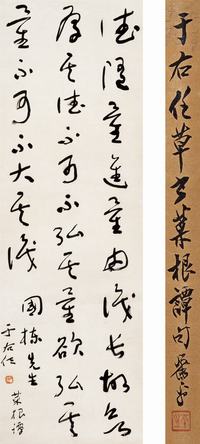 于右任草書菜根譚句
德隨量進量由識長故欲
厚其德不可不弘其量欲弘其
量不可不大其識
國棟先生
菜根譚
于右任